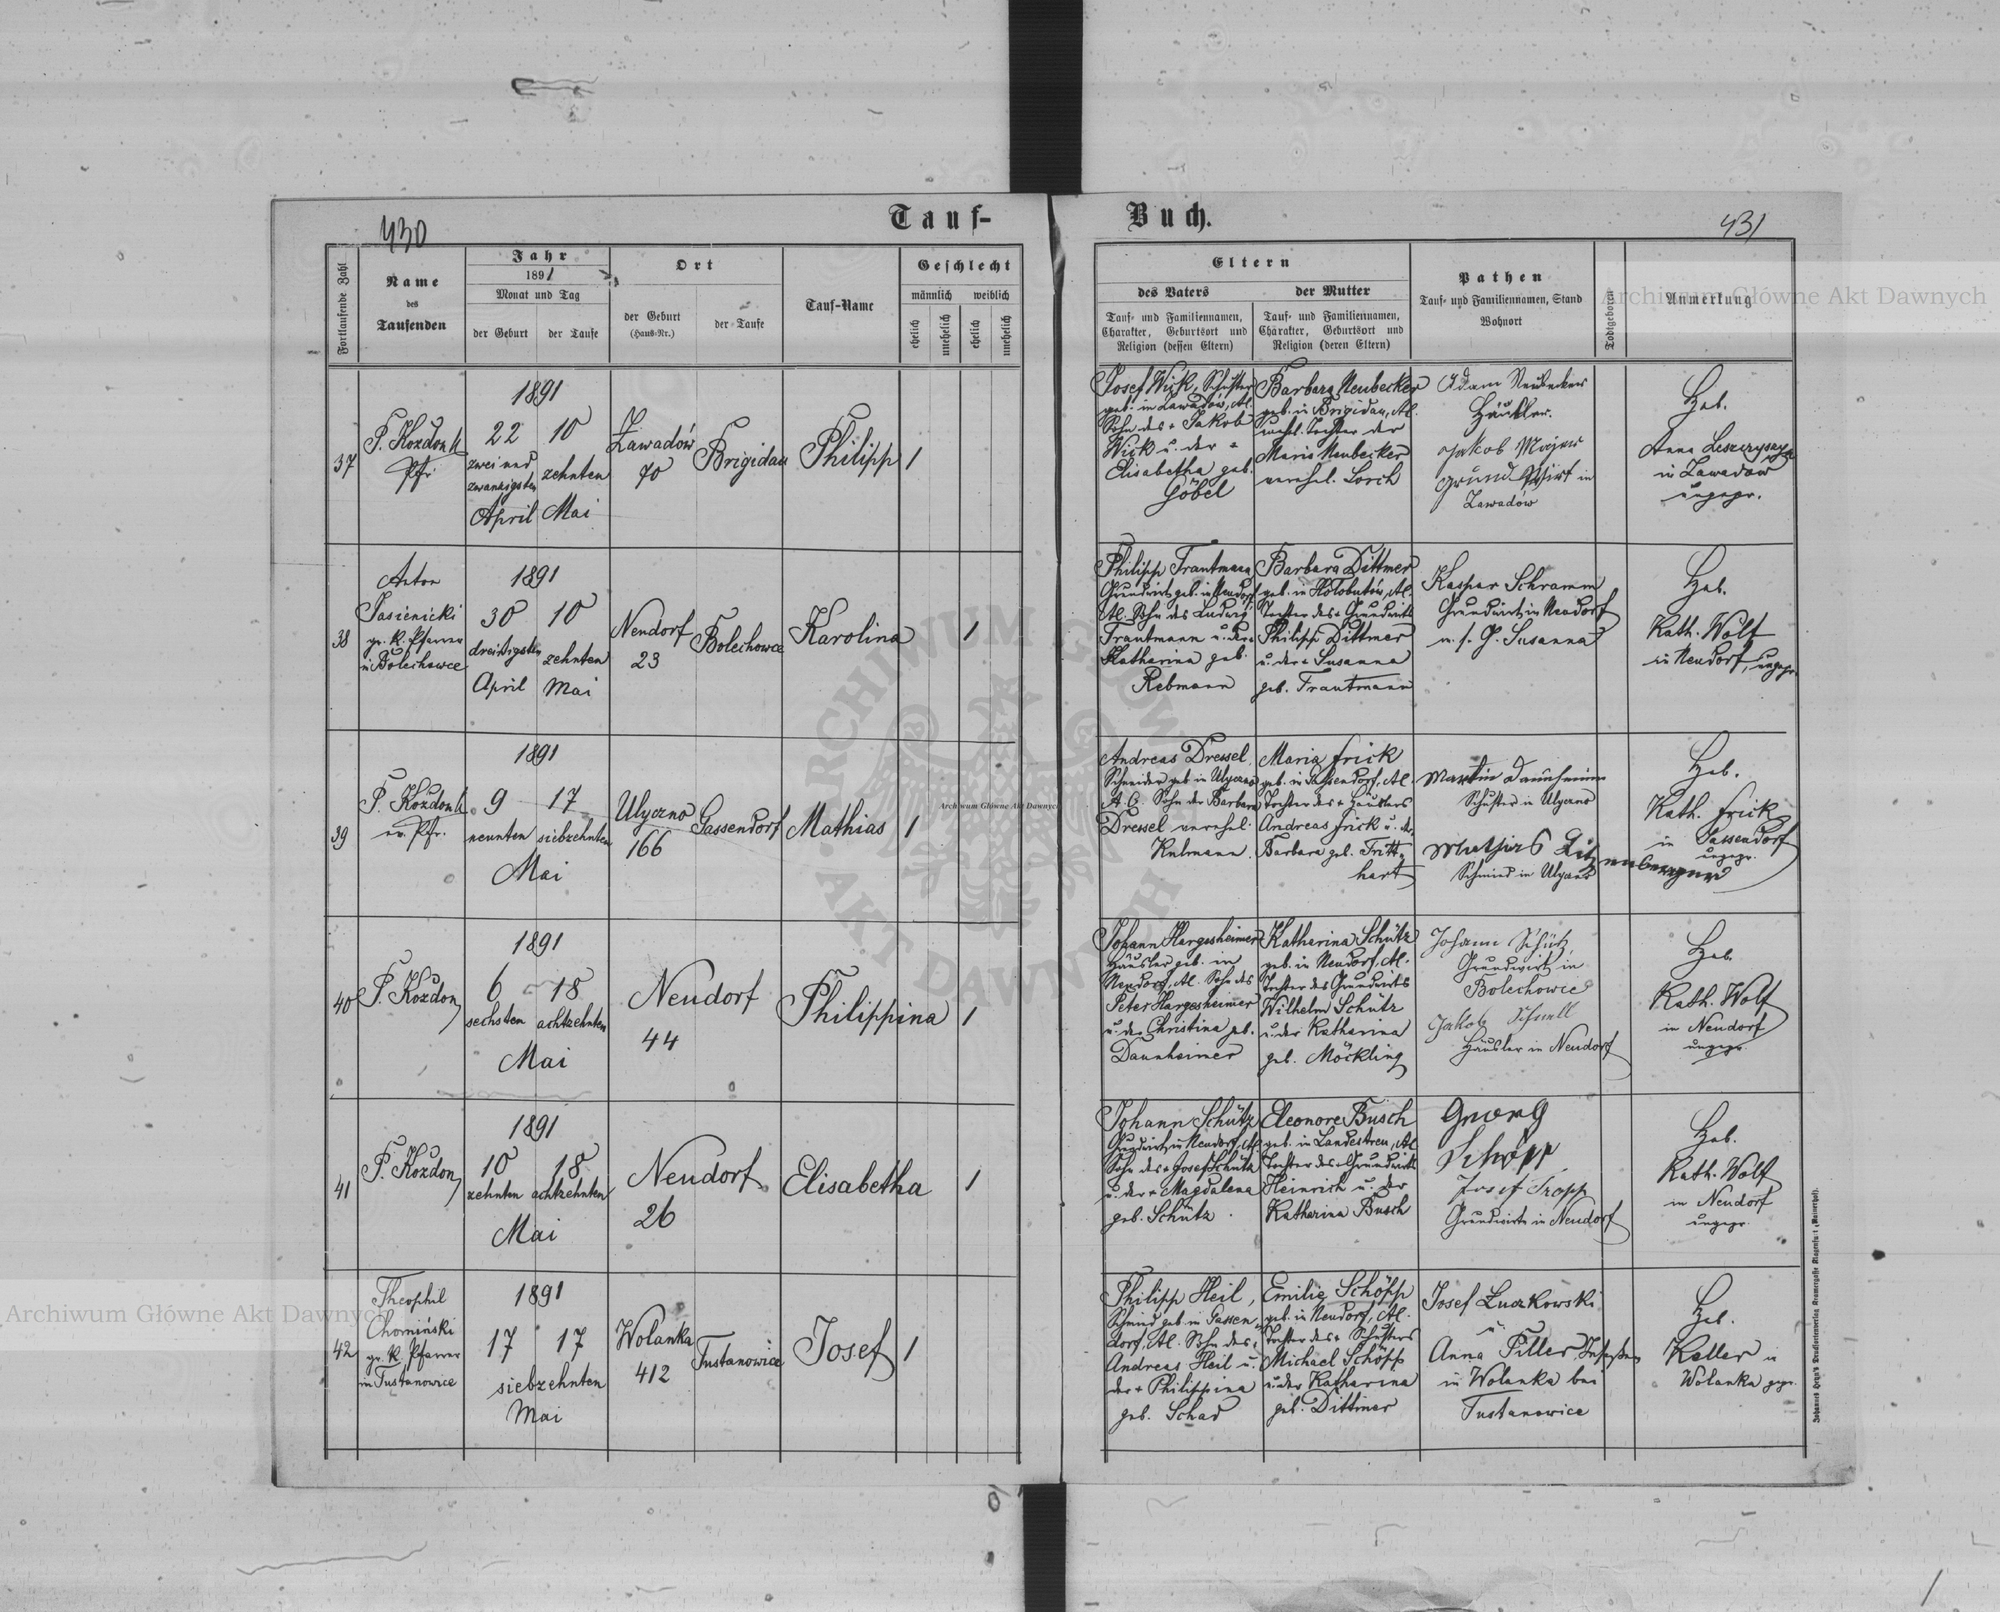 430
Tauf-
Buch.
431
Fortlaufende Zahl
Name
des
Taufenden
Jahr
1891
Monat und Tag
der Geburt
der Taufe
Ort
der Geburt
(Haus-Nr.)
der Taufe
Tauf-Name
Geschlecht
männlich
weiblich
ehelich
unehelich
ehelich
unehelich
Eltern
des Vaters
der Mutter
Tauf- und Familiennamen,
Charakter, Geburtsort und
Religion (dessen Eltern)
Tauf- und Familiennamen,
Charakter, Geburtsort und
Religion (deren Eltern)
Pathen
Tauf- und Familiennamen, Stand
Wohnort
Todtgeboren
Anmerkung
Archiwum Główne Akt Dawnych
37
Pfr.
1891
22
zwei und
zwanzigsten
April
10
zehnten
Mai
Zawadów
70
Brigidau
Philipp
1
Josef Wick, Schuster
geb. in Zawadów, Al.
Sohn des + Jakob
Wick u. der +
Elisabetha geb.
Göbel
Barbara Neubecker
geb. in Brigidau, Al.
unehel. Tochter der
Maria Neubecker
verehel. Lorch
Adam Neubecker
Häusler.
Jakob Majer
Grund Wirt in
Zawadów
Heb.
Anna
in Zawadów
ungepr.
38
Anton
Jasienicki
gr. k. Pfarrer
in Bolechowce
1891
30
dreißigsten
April
10
zehnten
Mai
Neudorf
23
Bolechowce
Karolina
1
Philipp Trautmann
Grundwirt geb. in Neudorf
Al. Sohn des Ludwig
Trautmann u. der
Katharina geb.
Rebmann
Barbara Dittmer
geb. in Kołobutów, Al.
Tochter des + Grundwirts
Philipp Dittmer
u. der + Susanna
geb. Trautmann
Kaspar Schramm
Grundwirt in Neudorf
u. s. G. Susanna
Heb.
Kath. Wolf
in Neudorf, ungepr.
39
P. Kozdon
ev. Pfr.
1891
9
neunten
17
siebzehnten
Mai
Ulyczno
166
Gassendorf
Mathias
1
Andreas Dressel
Schneider geb. in Ulyczno
A. C. Sohn der Barbara
Dressel verehel.
Kulmann.
Maria Frick
geb. in Gassendorf, Al.
Tochter des + Häuslers
Andreas Frick u. der
Barbara geb. Tritt-
hart
Martin Daunheimer
Schuster in Ulyczno
Schmied in Ulyczno
Heb.
Kath. Frick
in Gassendorf
ungepr.
Archiwum Główne Akt Dawnych
40
P. Kozdon
1891
6
sechsten
18
achtzehnten
Mai
Neudorf
44
Philippina
1
Johann Hargesheimer
Häusler geb. in
Neudorf, Al. Sohn des
Peter Hargesheimer
u. der Christina geb.
Daunheimer
Katharina Schütz
geb. in Neudorf, Al.
Tochter des Grundwirts
Wilhelm Schütz
u. der Katharina
geb. Möckling
Johann Schütz,
Grundwirt in
Bolechowce
Jakob Schnell
Häusler in Neudorf
Heb.
Kath. Wolf
in Neudorf
ungepr.
41
P. Kozdon
1891
10
zehnten
18
achtzehnten
Mai
Neudorf
26
Elisabetha
1
Johann Schütz
Grundwirt in Neudorf, Al.
Sohn des + Josef Schütz
u. der + Magdalena
geb. Schütz
Eleonore Busch
geb. in Landestreu, Al.
Tochter des + Grundwirts
Heinrich u. der
Katharina Busch
Georg
Schöpp
Josef Tropp
Grundwirte in Neudorf
Heb.
Kath. Wolf
in Neudorf
ungepr.
42
Theophil
Chomiński
gr. k. Pfarrer
in Tustanowice
1891
17
17
siebzehnten
Mai
Wolanka
412
Tustanowice
Josef
1
Philipp Heil,
Schmied geb. in Gassen-
dorf, Al. Sohn des +
Andreas Heil u.
der + Philippina
geb. Schad
Emilie Schöpp
geb. in Neudorf, Al.
Tochter des + Schusters
Michael Schöpp
u. der Katharina
geb. Dittmer
Josef Łuczkowski
u.
Anna Piller, Insaßen
in Wolanka bei
Tustanowice
Heb.
Keller in
Wolanka gepr.
Archiwum Główne Akt Dawnych
ARCHIWUM GŁÓWNE AKT DAWNYCH